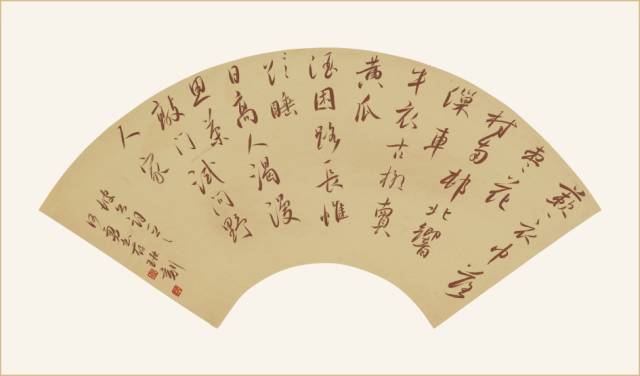 蔌〻衣巾落
棗花
村南邨北響
繅車
牛衣古柳賣
黃瓜
酒困路長惟
欲睡
日高人渴漫
思茶
敲门試问野
人家